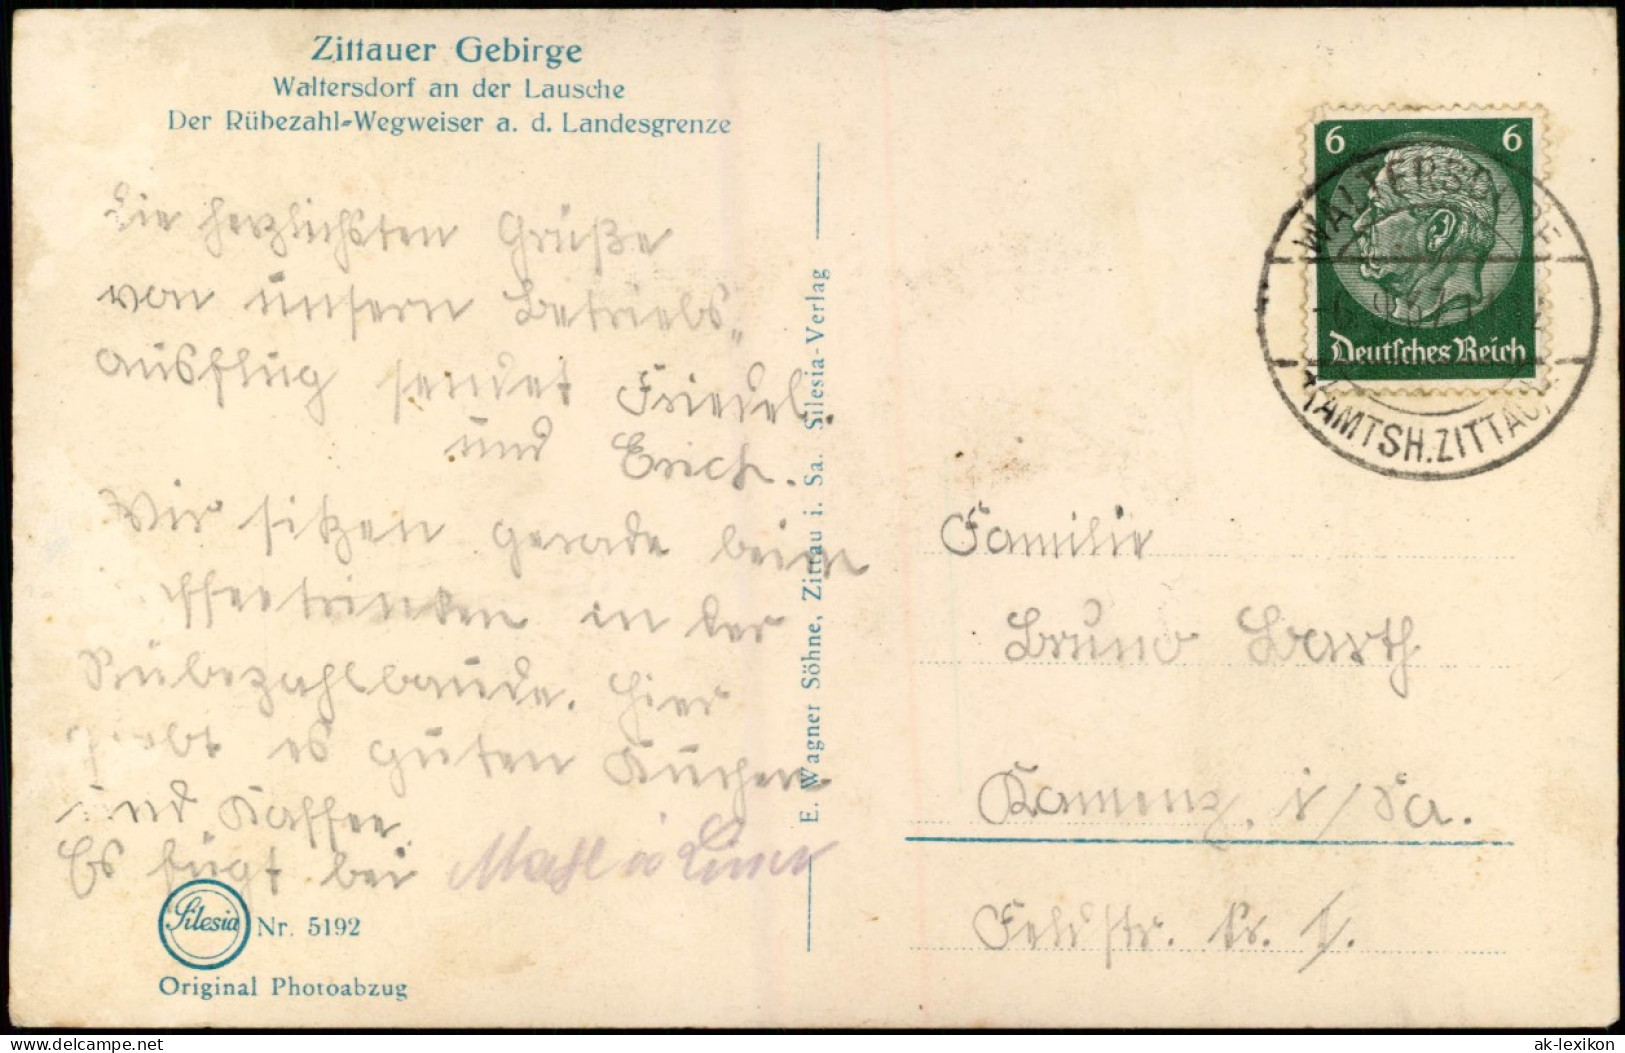 Zittauer Gebirge
Waltersdorf an der Lausche
Der Rübezahl-Wegweiser a. d. Landesgrenze
Die herzlichsten Grüße
von unsern Betriebs„
ausflug sendet Friedel.
und Erich.
Wir sitzen gerade beim
ffeetrinken in der
Rübezahlbaude. Hier
giebt es guten Kuchen
und Kaffee.
Es fügt bei
Silesia Nr. 5192
Original Photoabzug
E. Wagner Söhne, Zittau i. Sa. Silesia-Verlag
6 6
Deutsches Reich
WALTERSDORF
(AMTSH. ZITTAU)
Familie
Bruno Barth
Kamenz, i/Sa.
Feldstr. Nr.
ak-lexikon
© delcampe.net